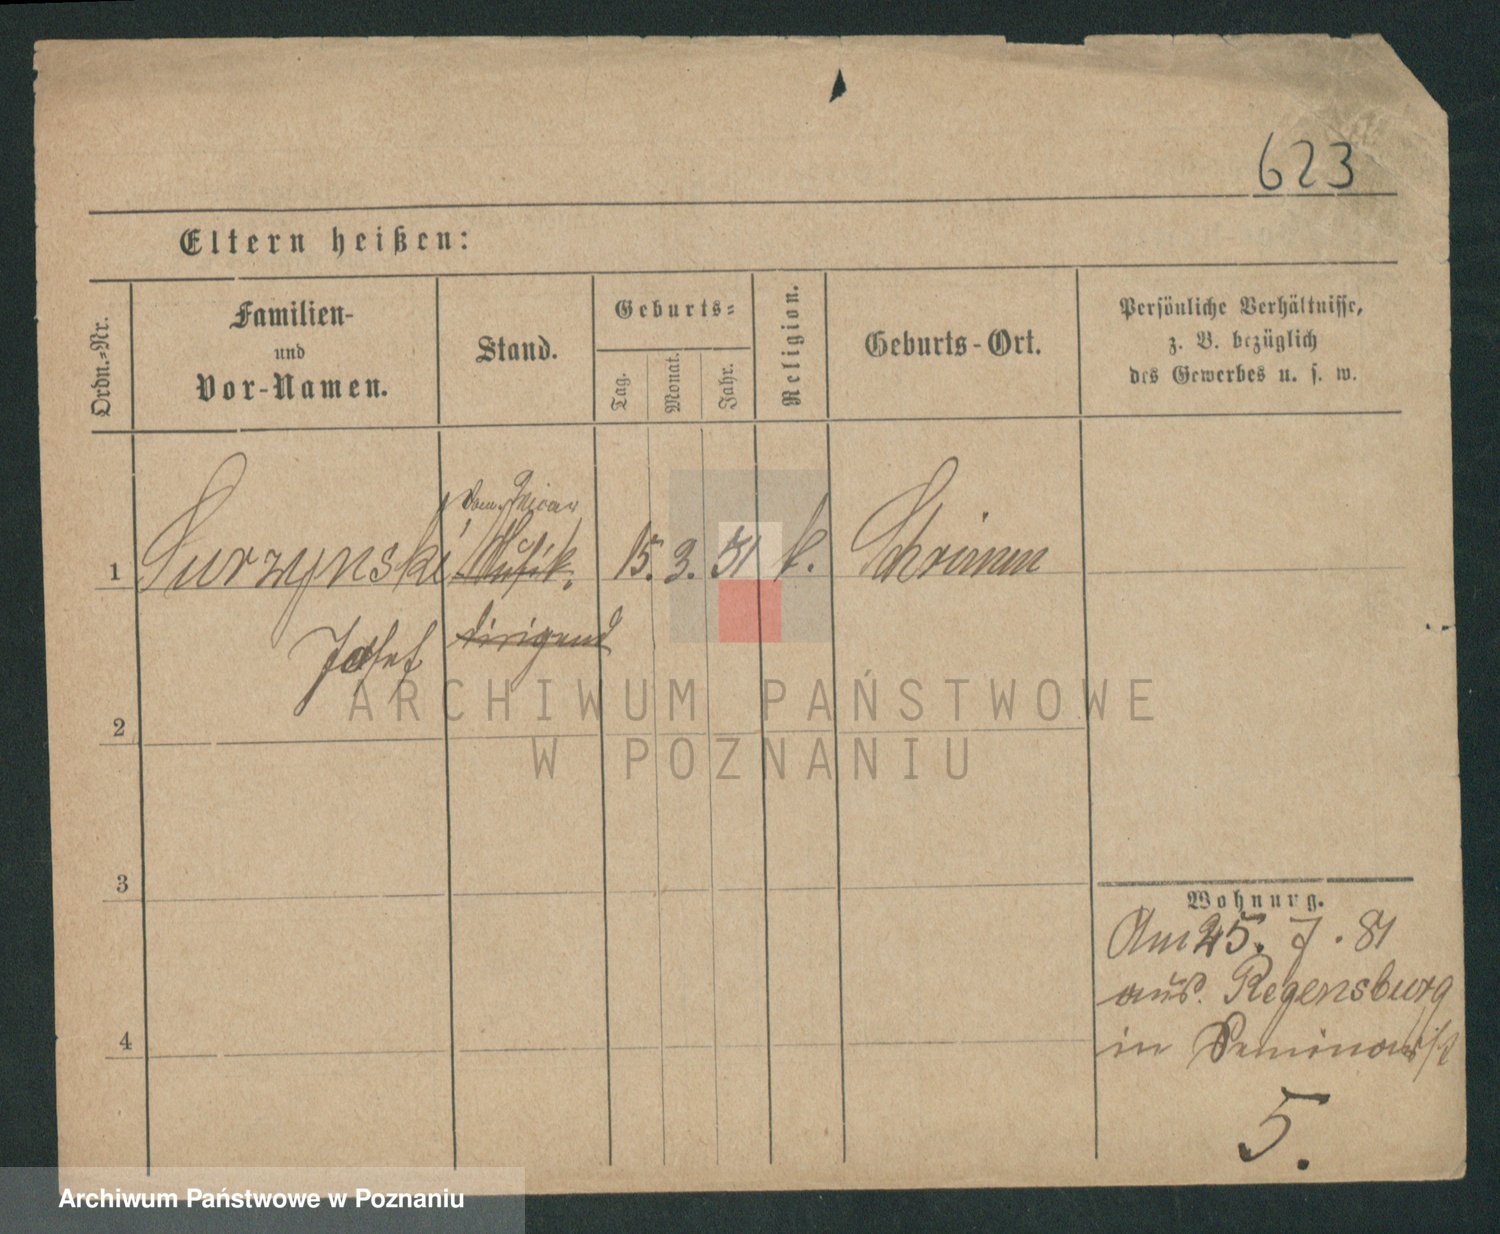 623
Eltern heißen:
Ordn.-Nr.
Familien-
und
Vor-Namen.
Stand.
Geburts-
Tag.
Monat.
Jahr.
Religion.
Geburts-Ort.
Persönliche Verhältnisse,
z. B. bezüglich
des Gewerbes u. s. w.
Dom. Vicar
1 Surzynski Musik. 15. 3. 51 k. Schrimm
Josef dirigend
ARCHIWUM PAŃSTWOWE
2
W POZNANIU
3
Wohnung.
Am 25. 7. 81
aus Regensburg
4
in
5.
Archiwum Państwowe w Poznaniu